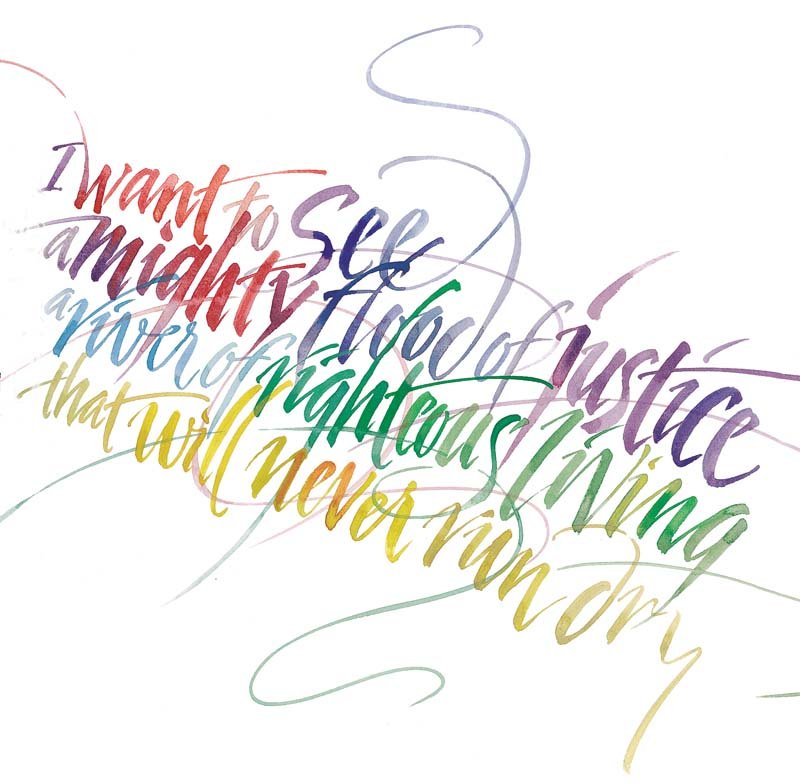 I want to see
a mighty flood of justice
a river of righteous living
that will never run dry